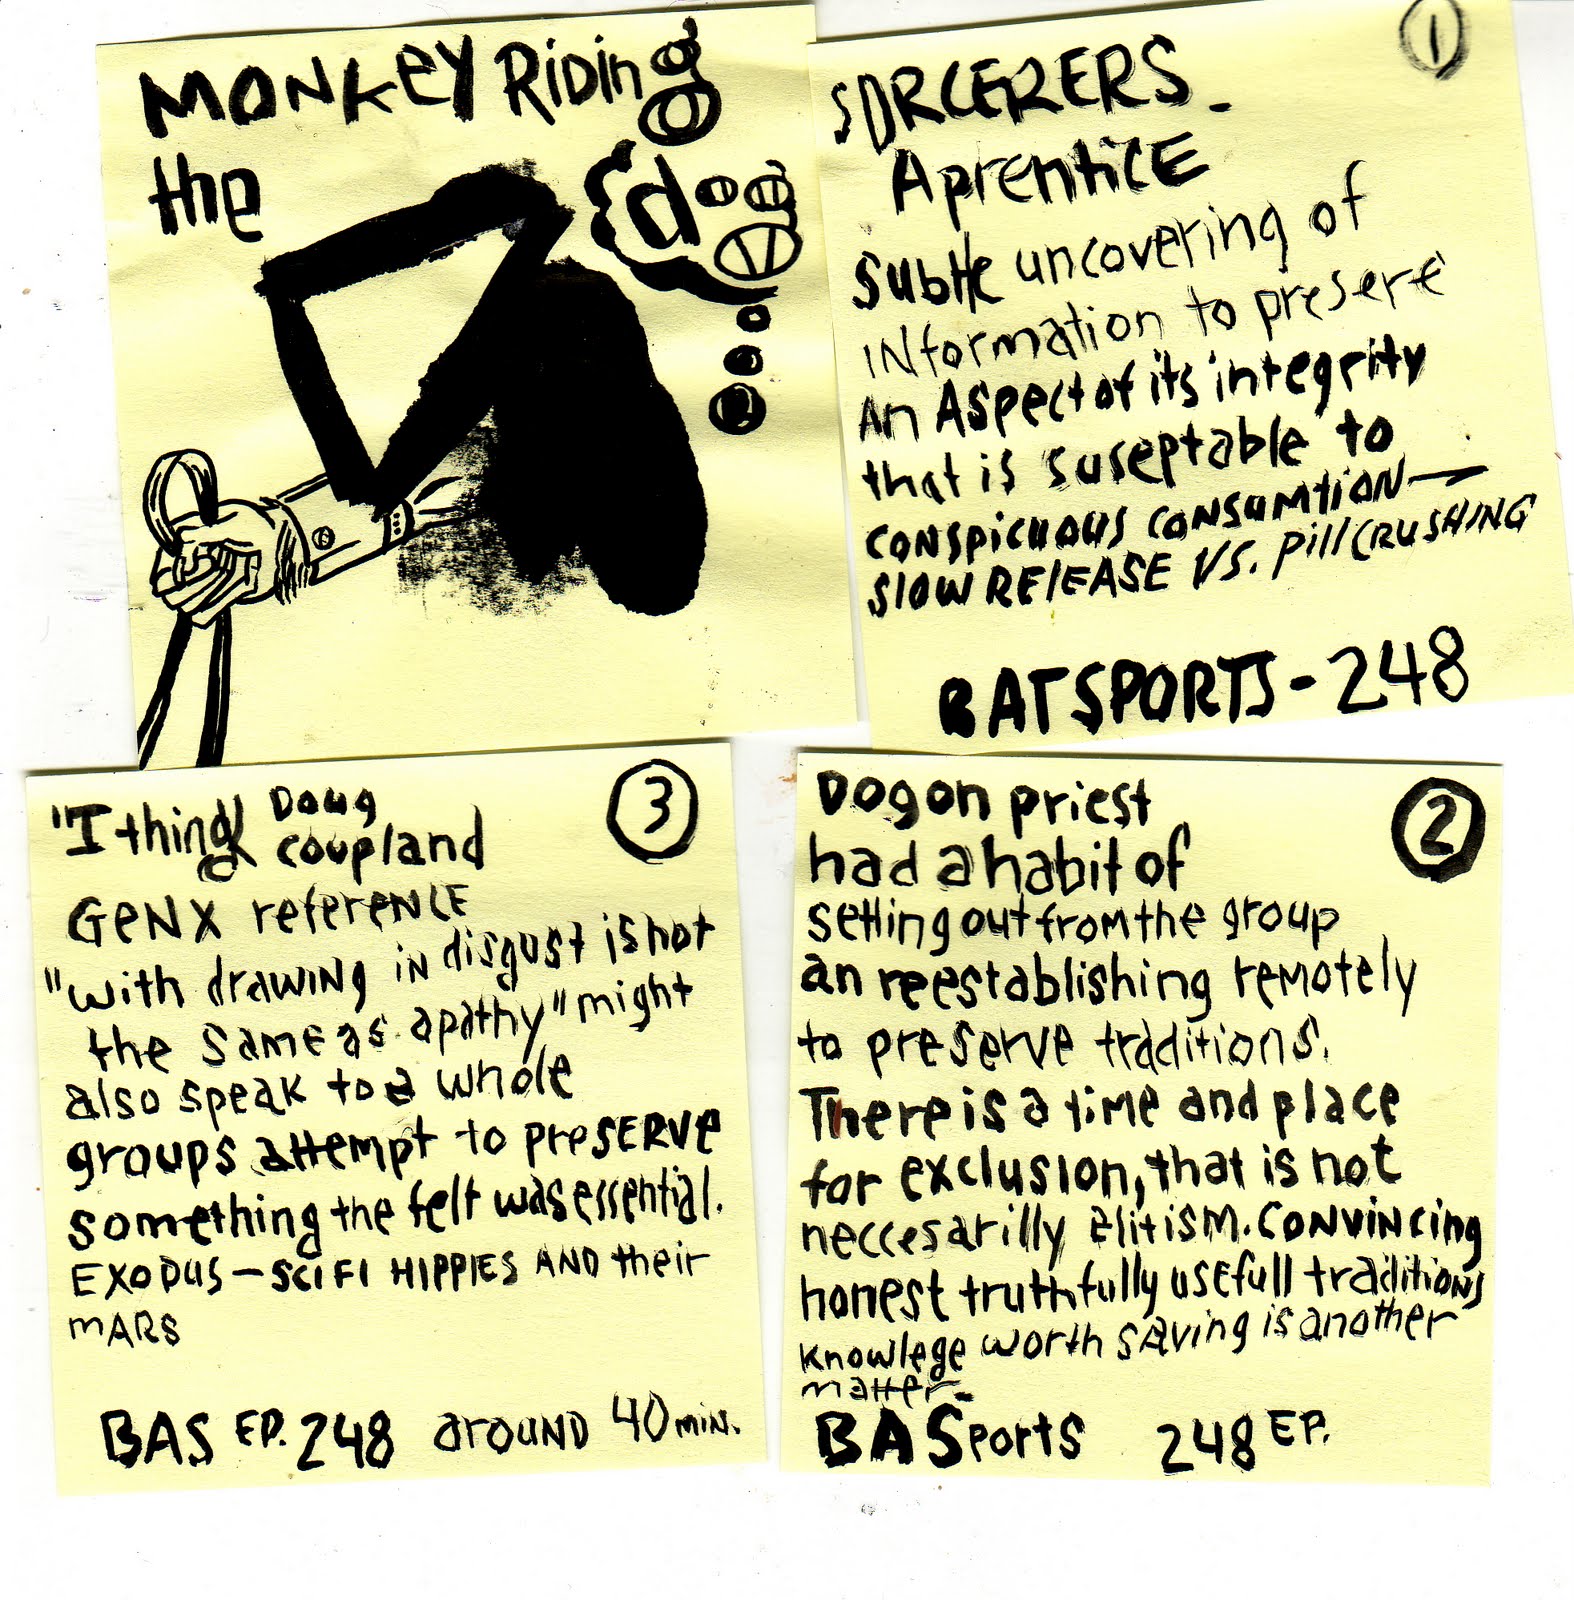 MONKEY RIDING
the
dog
1
SORCERERS -
Aprentice
Subtle uncovering of
INformation to preserve
An Aspect of its integrity
that is suseptable to
conspicuous consumtion —
slow RElEASE VS. pill CRUSHING
BATSPORTS - 248
3
"I thing Doug
coupland
GeN X reference
"with drawing in disgust is not
the same as apathy" might
also speak to a whole
groups attempt to preserve
something the felt was essential.
EXODUS — SCI FI HIPPIES AND their
mARS
BAS EP. 248 around 40 min.
2
Dogon priest
had a habit of
setting out from the group
an reestablishing remotely
to preserve traditions.
There is a time and place
for exclusion, that is not
neccesarilly elitism. CONVINCing
honest truthfully usefull traditions
knowlege worth saving is another
matter -
BASports 248 EP.